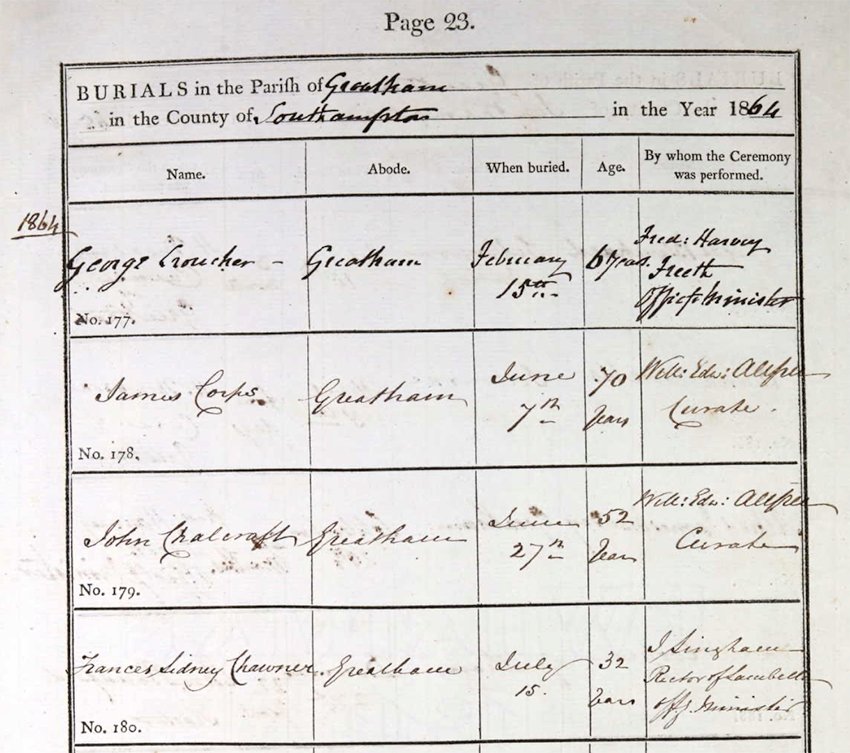 Page 23.
BURIALS in the Parish of Greatham
in the County of Southampton in the Year 1864
Name. Abode. When buried. Age. By whom the Ceremony
was performed.
1864
George Croucher - Greatham February 15th 6 years Fred: Harvey
Freeth
Offic. Minister
No. 177.
James Corps Greatham June 7th 70 Years Will: Edw:
Curate.
No. 178.
John Chalcraft Greatham June 27th 52 Years Will: Edw:
Curate
No. 179.
Frances Sidney Chawner Greatham July 15. 32 Years J
Rector of
Off. Minister
No. 180.